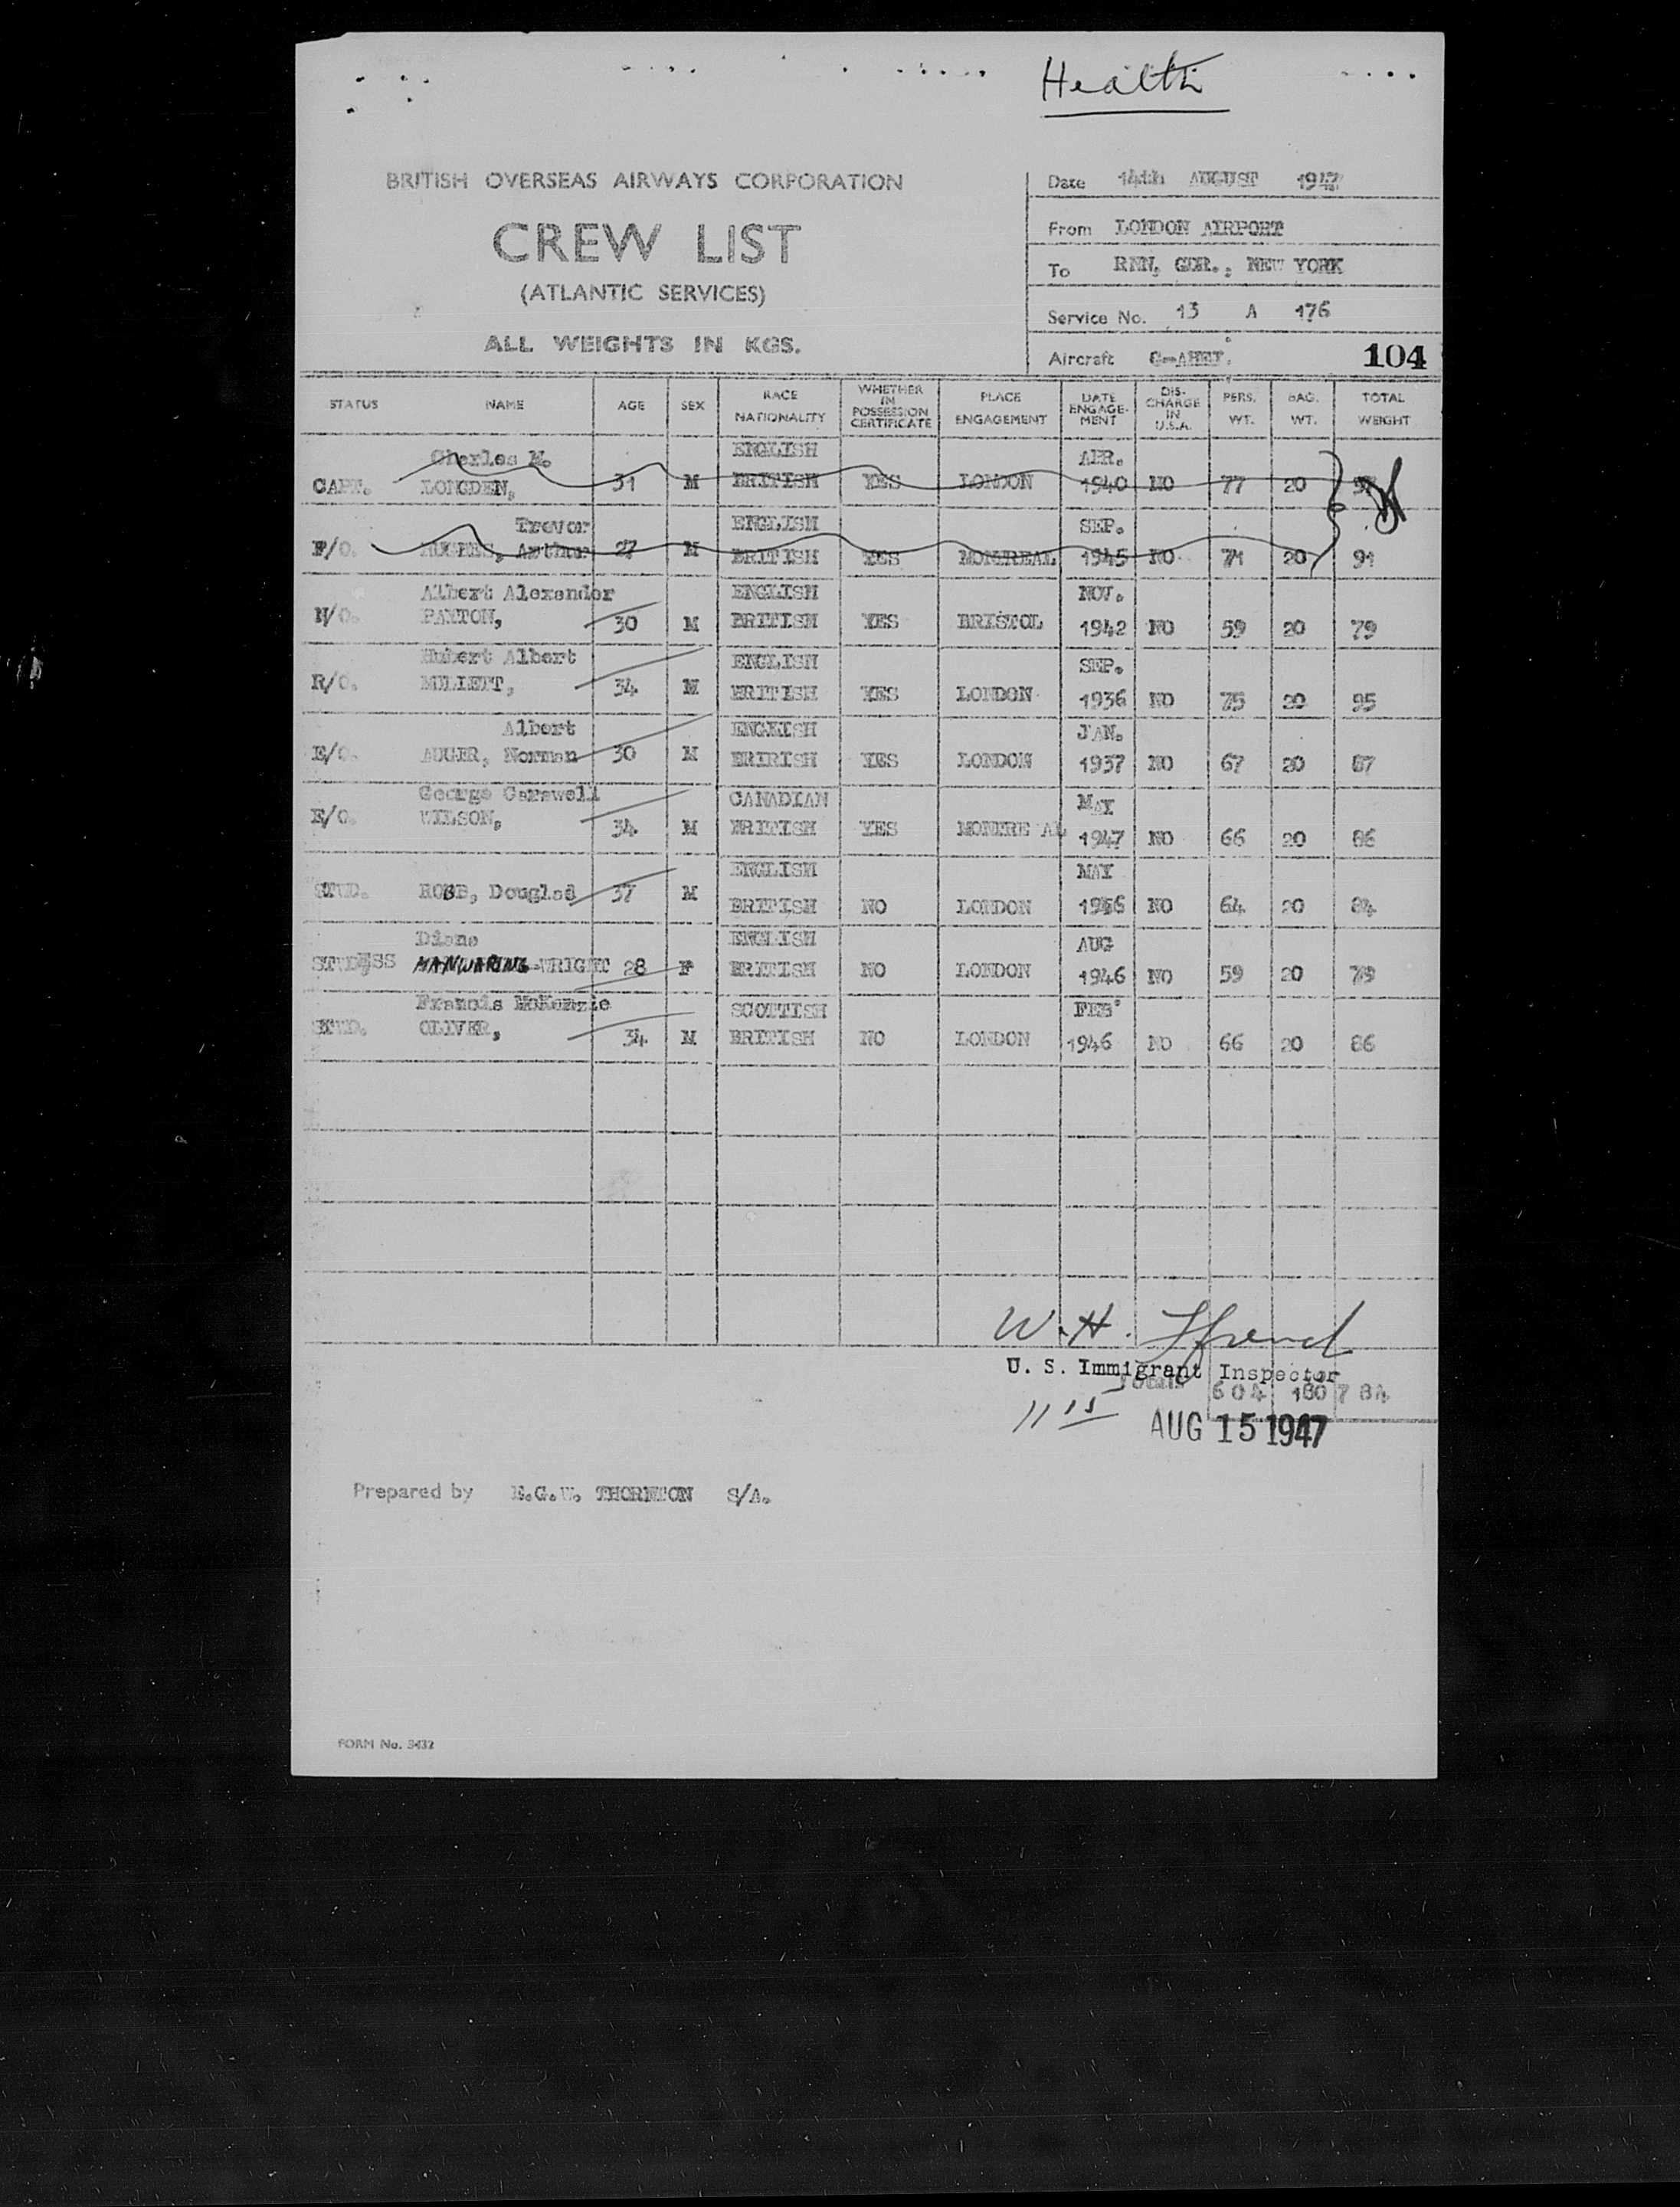 Health
BRITISH OVERSEAS AIRWAYS CORPORATION
CREW LIST
(ATLANTIC SERVICES)
ALL WEIGHTS IN KGS.
Date 14th AUGUST 1947
From LONDON AIRPORT
To RNN, GDR., NEW YORK
Service No. 13 A 176
Aircraft G-AHET. 104
STATUS NAME AGE SEX RACE NATIONALITY WHETHER IN POSSESSION CERTIFICATE PLACE ENGAGEMENT DATE ENGAGE-MENT DIS-CHARGE IN U.S.A. PERS. WT. BAG. WT. TOTAL WEIGHT
Charles M. ENGLISH APR.
CAPT. LONGDEN, 31 M BRITISH YES LONDON 1940 NO 77 20 97
Trevor ENGLISH SEP.
F/O. HUGHES, Arthur 27 M BRITISH YES MONTREAL 1945 NO 71 20 91
Albert Alexander ENGLISH NOV.
N/O. PAXTON, 30 M BRITISH YES BRISTOL 1942 NO 59 20 79
Hubert Albert ENGLISH SEP.
R/O. 34 M BRITISH YES LONDON 1936 NO 75 20 95
Albert ENGLISH JAN.
E/O. AUGER, Norman 30 M BRIRISH YES LONDON 1937 NO 67 20 87
George Carswell CANADIAN MAY
E/O. WILSON, 34 M BRITISH YES MONTRE AL 1947 NO 66 20 86
ENGLISH MAY
STWD. ROBB, Douglas 37 M BRITISH NO LONDON 1946 NO 64 20 84
Diana ENGLISH AUG
STWDESS MANWARING-WRIGHT 28 F BRITISH NO LONDON 1946 NO 59 20 79
Francis McKenzie SCOTTISH FEB
STWD. OLIVER, 34 M BRITISH NO LONDON 1946 NO 66 20 86
W.H.
U. S. Immigrant Inspector
Totals 604 180 784
11 15 AUG 15 1947
Prepared by E.G.W. THORNTON S/A.
FORM No. 3432